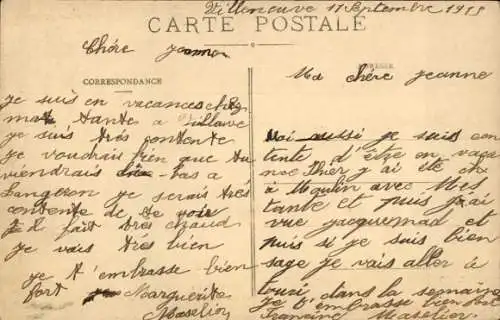 Villeneuve 11 Septembre 1915
CARTE POSTALE
Chére
CORRESPONDANCE
je suis en vacances chez
ma tante a
je suis trés contente
je voudrais bien que tu
viendrais bas a
Langeron je serais trés
contente de te voir
il fait tres chaud
je vais trés bien
je t'embrasse bien
fort Marguérite
Maselier
Ma chére jeanne
Moi aussi je suis con
tente d'étre en vacan
Hier j'ai été
a Moulin avec Mes
tante et puis j'ai
vue jacquemad et
puis si je suis bien
sage je vais aller à
dans la semaine
je t'embrasse bien fort
Francine Maselier